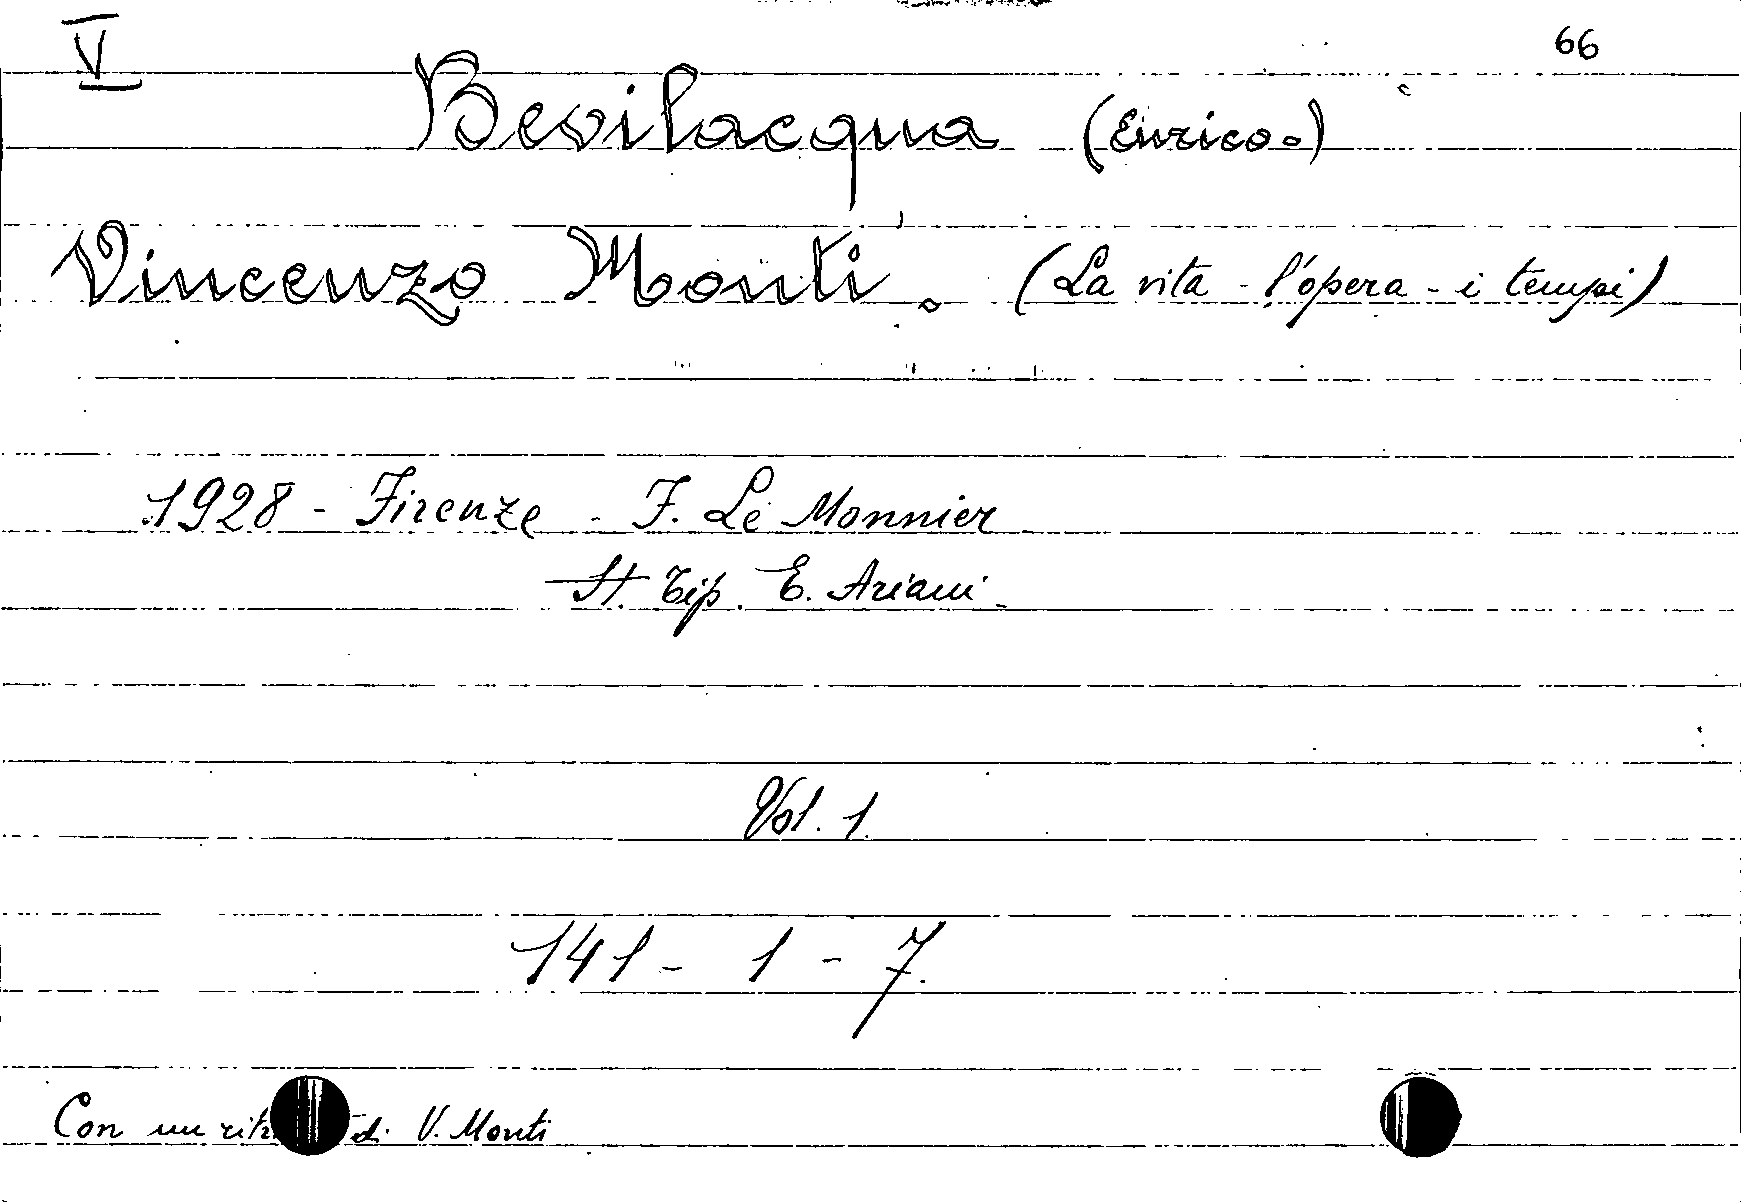 V 66
Bevilacqua (Enrico.)
Vincenzo Monti. (La vita - l'opera - i tempi)
1928 - Firenze - F. Le Monnier
St. Tip. E. Ariani.
Vol. 1.
141 - 1 - 7.
Con un di V. Monti